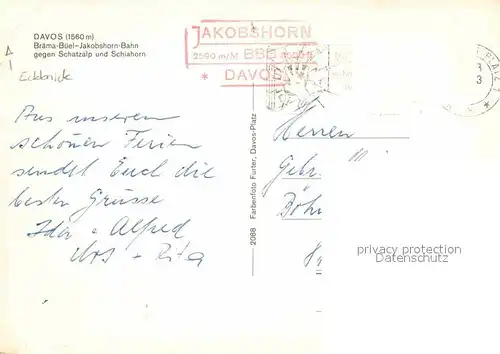 DAVOS (1560 m)
Bräma-Büel-Jakobshorn-Bahn
gegen Schatzalp und Schiahorn
JAKOBSHORN
2590 m/M BBB
* DAVOS
Aus unseren
schönen Ferien
sendet Euch die
besten Grüsse
Ida + Alfred
Urs + Rita
2088 Farbenfoto Furter, Davos-Platz
Herren
Gebr.
Böh
privacy protection
VEREFI.DE